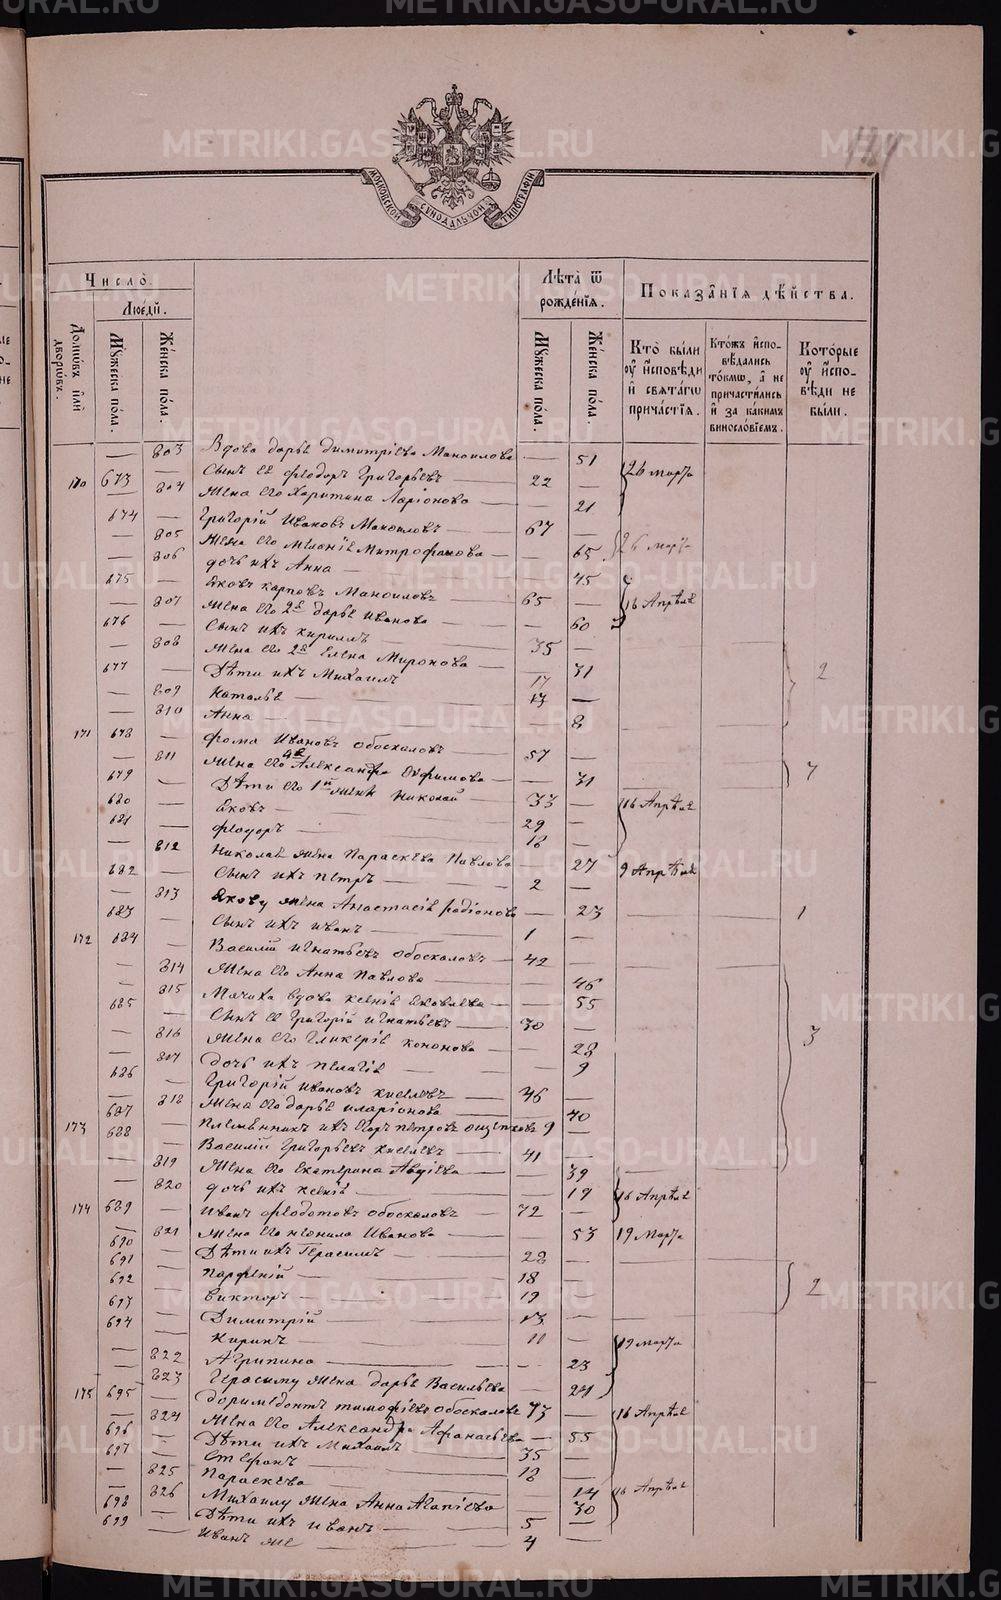 МОСКОВСКОЙ СѴНОДАЛЬНОЙ ТИПОГРАФІИ
Число̀
Людій.
Домѡвъ и҆лѝ дворѡвъ.
Мꙋжеска пола.
Женска пола.
Лѣта̀ ѿ рождeнїѧ.
Мꙋжеска пола.
Женска пола.
Показа̑нїѧ дѣйства.
Кто̀ были ᲂу҆ и҆сповѣди и҆ свѧта́гѡ причастїѧ.
Кто́жъ и҆споведались то́кмѡ, а҆ не причасти́лись и҆ за какимъ винословїемъ.
Которые ᲂу҆ и҆споведи не были.
— 803 Вдова Дарья Димитріева Маноилова — 51
170 673 — Сынъ ея Феодоръ Григорьевъ 22 — 26 марта
— 804 Жена его Харитина Ларіонова — 21
674 — Григорій Ивановъ Маноиловъ 67 —
— 805 Жена его Меланія Митрофанова — 65 26 марта
— 806 дочь ихъ Анна — 45
675 — Яковъ Карповъ Маноиловъ 65 — 16 Апрѣля
— 807 Жена его 2я Дарья Иванова — 60
676 — Сынъ ихъ Кириллъ 35 —
— 808 Жена его 2я Елена Миронова — 31
677 — Дѣти ихъ Михаилъ 17 — 2
— 809 Наталья 13 —
— 810 Анна — 8
171 678 — Фома Ивановъ Обоскаловъ 57 —
— 811 Жена его Александра Ефимова — 31
679 — Дѣти его 1й жены Николай 33 —
680 — Яковъ 29 — 16 Апрѣля
681 — Феодоръ 18 —
— 812 Николая жена Параскева Павлова — 27 9 Апрѣля
682 — Сынъ ихъ Петръ 2 —
— 813 Якову жена Анастасія Родіонова — 23 1
683 — Сынъ ихъ Иванъ 1 —
172 684 — Василій Игнатьевъ Обоскаловъ 42 —
— 814 Жена его Анна Павлова — 46
— 815 Мачиха вдова Ксенія Яковлева — 55
685 — Сынъ ея Григорій Игнатьевъ 30 — 3
— 816 Жена его Гликерія Кононова — 28
— 817 Дочь ихъ Пелагія — 9
686 — Григорій Ивановъ Киселевъ 46 —
— 818 Жена его Дарья Иларіонова — 40
687 — Племянникъ ихъ Егоръ Петровъ 9 —
173 688 — Василій Григорьевъ Киселевъ 41 —
— 819 Жена его Екатерина Авдіева — 39
— 820 дочь ихъ Ксенія — 19 16 Апрѣля
174 689 — Иванъ Феодотовъ Обоскаловъ 72 —
— 821 Жена его Неонила Иванова — 53 19 Марта
690 — Дѣти ихъ Герасимъ 28 —
691 — Парфеній 18 —
692 — Викторъ 19 — 2
693 — Димитрій 13 —
694 — Киринъ 11 — 19 марта
— 822 Агрипина — 23
— 823 Герасиму жена Дарья Васильева — 24
175 695 — Доримедонтъ Тимофѣевъ Обоскаловъ 73 — 16 Апрѣля
— 824 Жена его Александра Афанасьева — 55
696 — Дѣти ихъ Михаилъ 35 —
697 — Стефанъ 18 —
— 825 Параскева — 14 16 Апрѣля
— 826 Михаилу жена Анна Агапіева — 30
698 — Дѣти ихъ Иванъ 5 —
699 — Иванъ же 4 —
METRIKI.GASO-URAL.RU